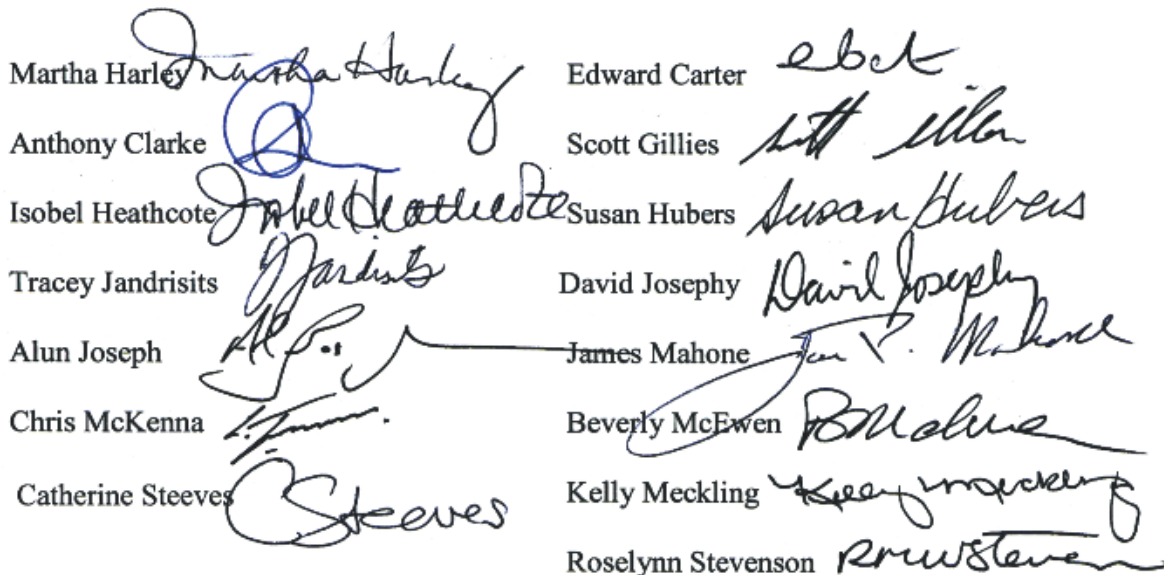 Martha Harley Martha Harley
Anthony Clarke
Isobel Heathcote Isobel Heathcote
Tracey Jandrisits TJandrisits
Alun Joseph
Chris McKenna
Catherine Steeves CSteeves
Edward Carter
Scott Gillies
Susan Hubers Susan Hubers
David Josephy David Josephy
James Mahone
Beverly McEwen
Kelly Meckling Kelly Meckling
Roselynn Stevenson